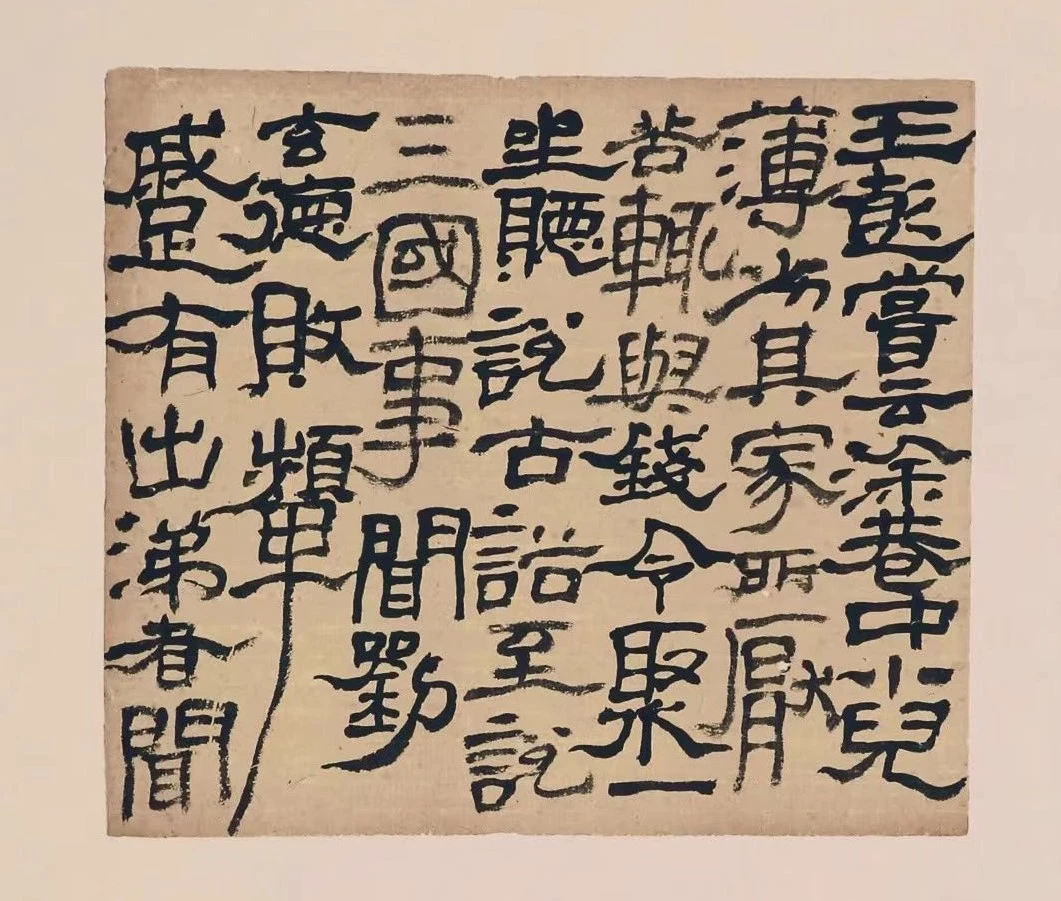 王彭嘗云涂巷中小兒
薄劣其家所厭
苦輒與錢令聚一
坐聽說古話至說
三國事聞劉
玄德敗顰
蹙有出涕者聞